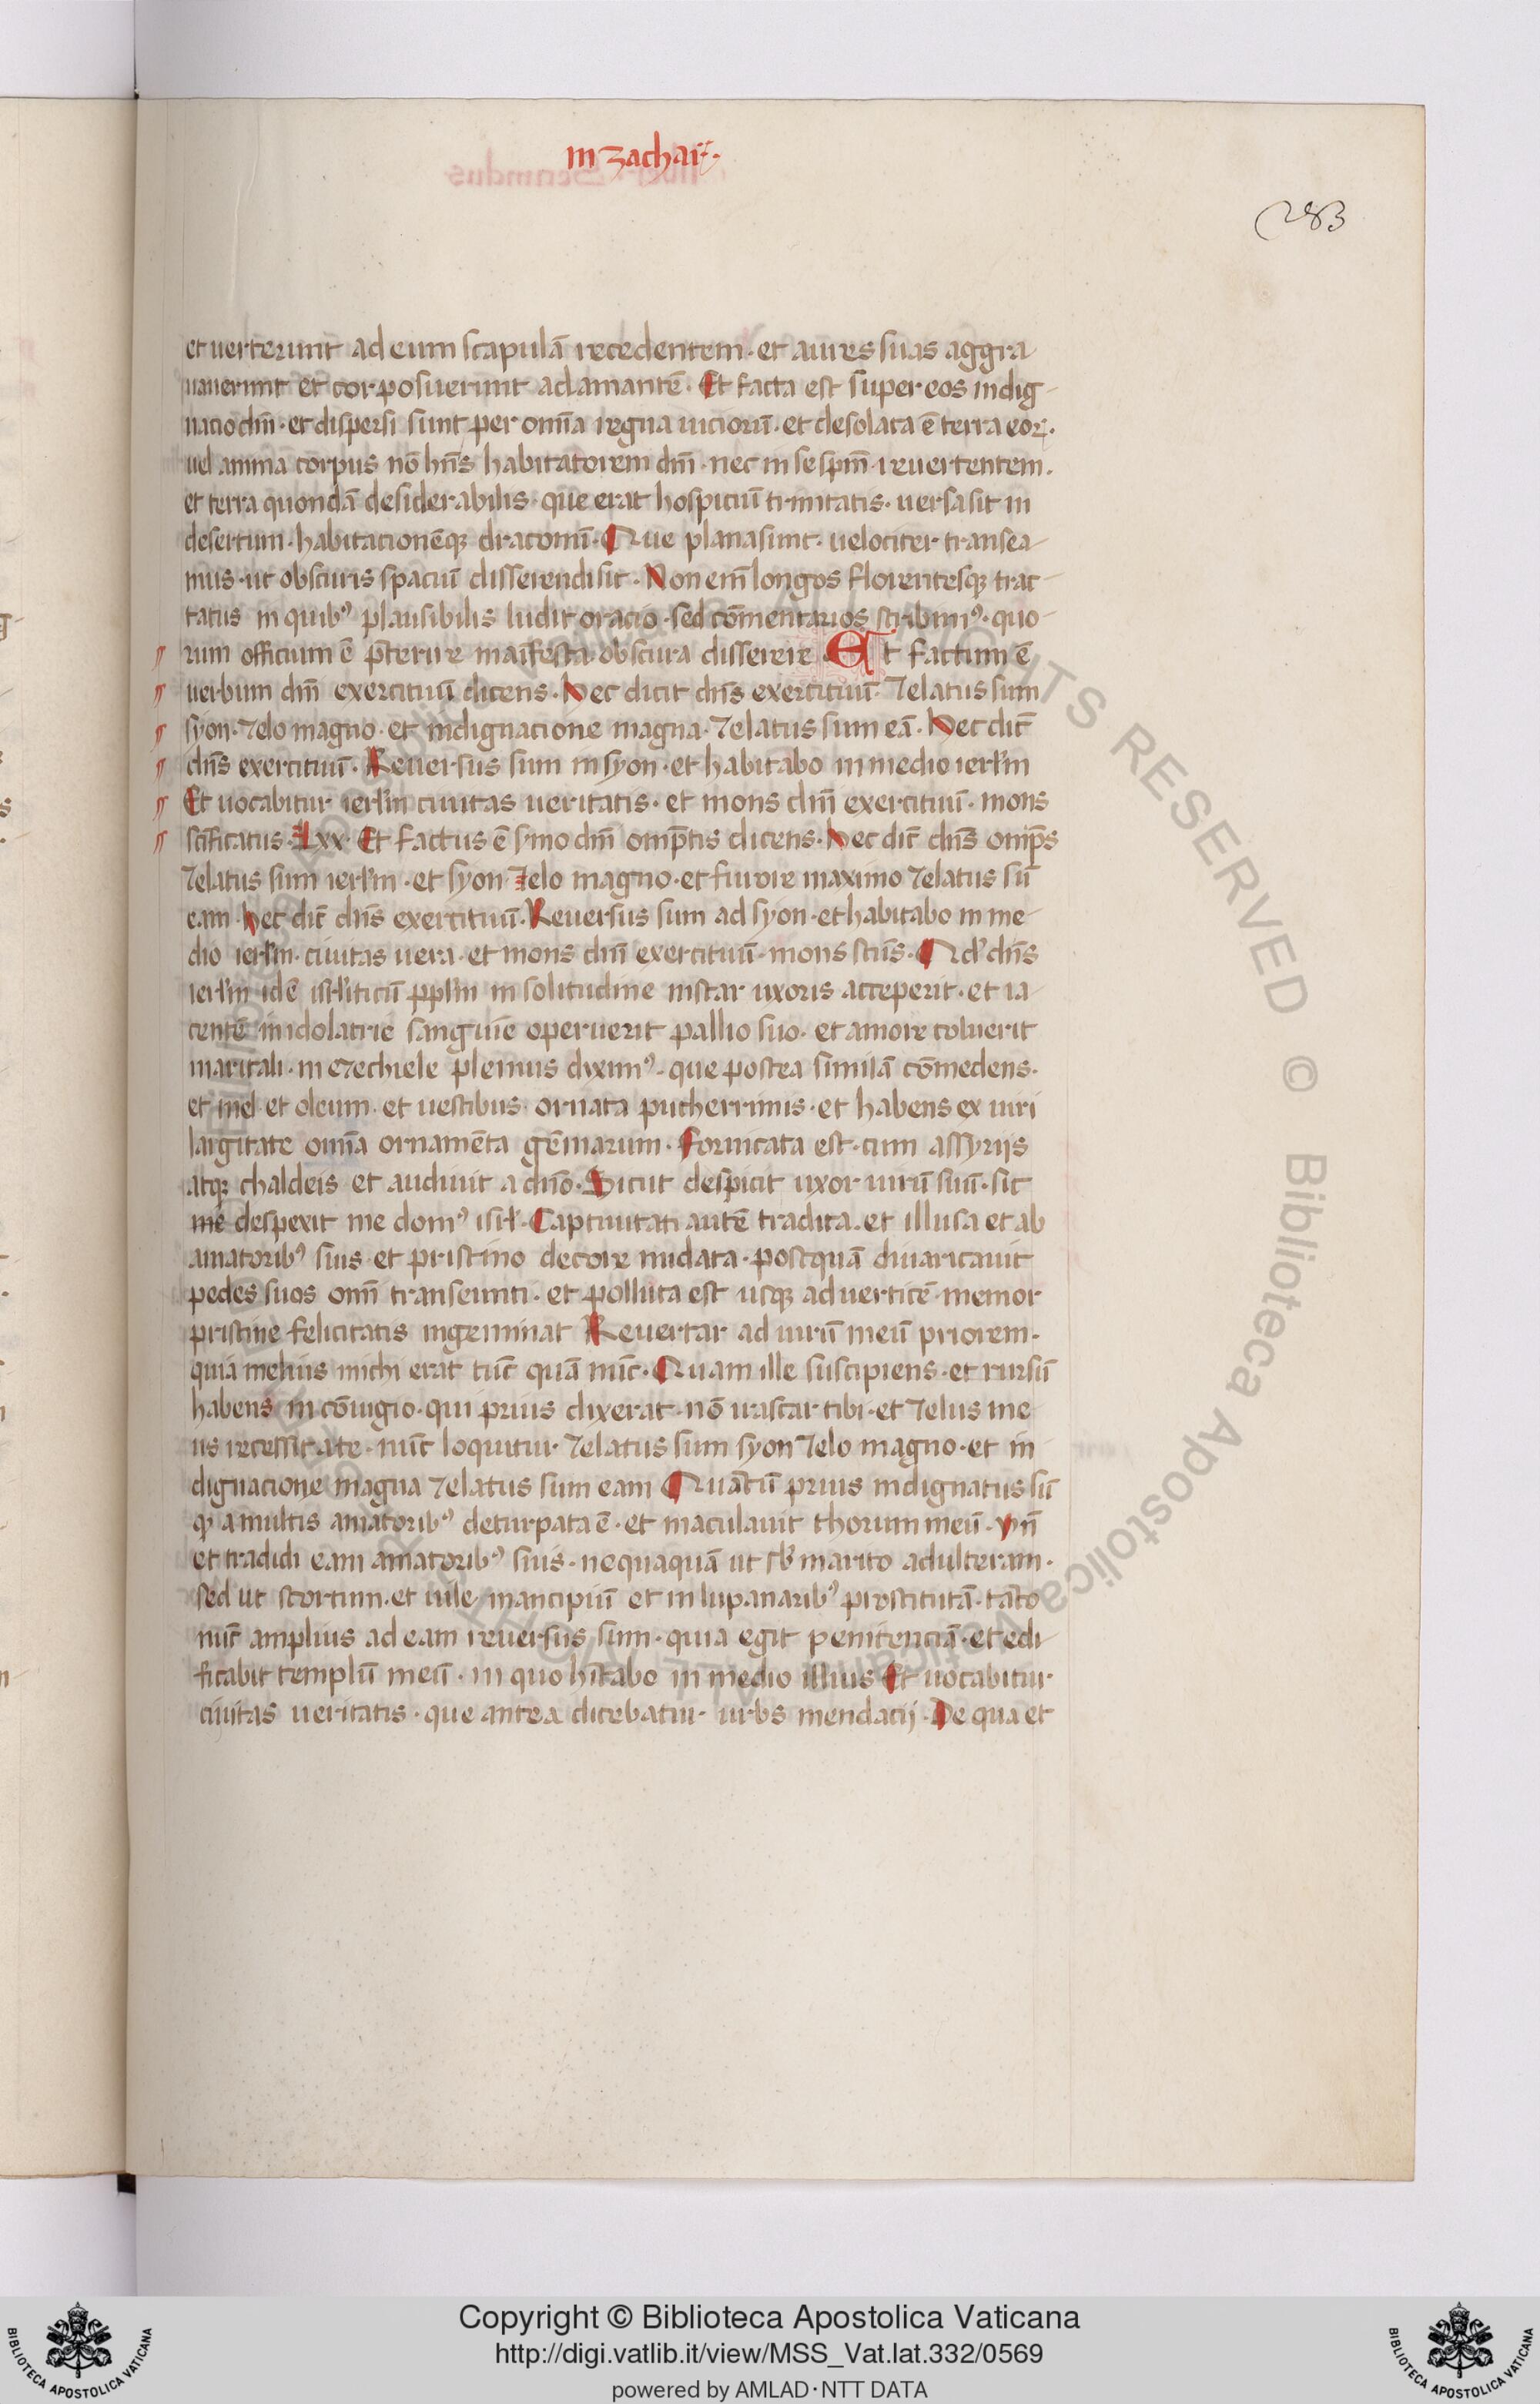 in zachar̄.
283
et uerterunt ad eum scapulā recedentem · et aures suas aggra-
uauerunt et cor posuerunt adamantē · Et facta est super eos indig-
nacio dn̄i · et dispersi sunt per om̄ia regna uiciorū · et desolata ē terra eoꝝ ·
uel anima corpus nō hn̄s habitatorem dm̄ · nec in se spm̄ reuertentem .
et terra quondā desiderabilis · que erat hospiciū trinitatis · uersa sit in
desertum · habitacionēqꝫ draconū · Que plana sunt · uelociter transea-
mus · ut obscuris spaciū disserendi sit · Non em̄ longos florentesqꝫ trac-
tatus in quibꝰ plausibilis ludit oracio · sed cōmentarios scribimꝰ · quo-
rum officium ē p̄terire manifesta · obscura disserere Et factum ē
uerbum dn̄i exercituū dicens · Hec dicit dn̄s exercituū · Zelatus sum
syon · zelo magno · et indignacione magna · zelatus sum eā · Hec dic̄
dn̄s exercituū · Reuersus sum in syon · et habitabo in medio ierłm
Et uocabitur ierłm ciuitas ueritatis · et mons dn̄i exercituū · mons
sc̄ificatus · Lxx · Et factus ē s̄mo dn̄i omp̄tis dicens · Hec dic̄ dn̄s omp̄s
Zelatus sum ierłm · et syon zelo magno · et furore maximo zelatus sū
eam · Hec dic̄ dn̄s exercituū · Reuersus sum ad syon · et habitabo in me-
dio ierłm · ciuitas uera · et mons dn̄i exercituū · mons sc̄us · Qd' dn̄s
ierłm idē isrłiticū ppłm in solitudine instar uxoris acceperit · et ia-
centē in idolatrie sanguīe operuerit pallio suo · et amore coluerit
maritali · in ezechiele plenius diximꝰ · que postea similā cōmedens ·
et mel · et oleum · et uestibus · ornata pucherrimis · et habens ex uiri
largitate om̄ia ornamēta gēmarum · Fornicata est · cum assyrijs
atqꝫ chaldeis et audiuit a dn̄o · Sicut despicit uxor uirū suū · sic
me despexit me domꝰ isrł · Captiuitati autē tradita · et illusa et ab
amatoribꝰ suis · et pristino decore nudata · postquā diuaricauit
pedes suos om̄i transeunti · et polluta est usqꝫ ad uerticē · memor
pristine felicitatis ingeminat Reuertar ad uirū meū priorem ·
quia melius michi erat tūc quā nūc · Quam ille suscipiens · et rursū
habens in cōiugio · qui prius dixerat · nō irascar tibi · et zelus me-
us recessit a te · nūc loquitur · zelatus sum syon zelo magno · et in-
dignacione magna zelatus sum eam Quātū prius indignatus sū
qꝫ a multis amatoribꝰ deturpata ē · et maculauit thorum meū · Vn̄
et tradidi eam amatoribꝰ suis · nequaquā ut sb' marito adulteram ·
sed ut scortum · et uile mancipiū et in lupanaribꝰ prostitutā · tāto
nūc amplius ad eam reuersus sum · quia egit penitenciā · et edi-
ficabit templū meū · in quo hītabo in medio illius Et uocabitur
ciuitas ueritatis · que antea dicebatur urbs mendacij · De qua et
ALL RIGHTS RESERVED © Biblioteca Apostolica Vaticana
Copyright © Biblioteca Apostolica Vaticana
http://digi.vatlib.it/view/MSS_Vat.lat.332/0569
powered by AMLAD·NTT DATA
BIBLIOTECA APOSTOLICA VATICANA
BIBLIOTECA APOSTOLICA VATICANA